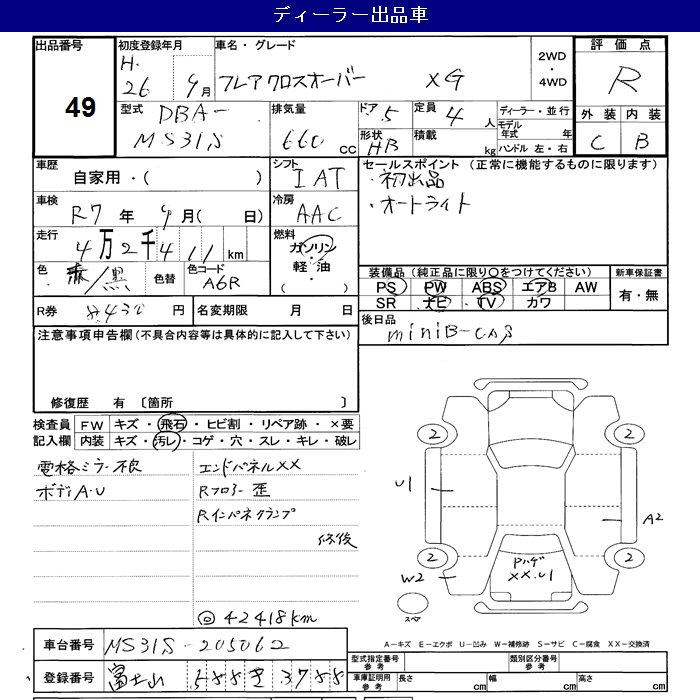 ディーラー出品車
出品番号
49
初度登録年月
H.
26 9月
車名・グレード
フレアクロスオーバー XG
2WD
・
4WD
評価点
R
型式 DBA-
MS31S
排気量
660 cc
ドア 5
形状 HB
定員 4 人
積載 kg
ディーラー・並行
モデル年式 年
ハンドル 左・右
外装 内装
C B
車歴
自家用・( )
シフト
IAT
セールスポイント (正常に機能するものに限ります)
・初出品
・オートライト
車検
R7 年 9月( 日)
冷房
AAC
走行
4万2千411 km
燃料
ガソリン
・
軽・油
( )
色 赤/黒
色替
色コード
A6R
装備品(純正品に限り○をつけてください)
PS PW ABS エアB AW
SR ナビ TV カワ
新車保証書
有・無
R券 円
名変期限 月 日
後日品
miniB-CAS
注意事項申告欄(不具合内容等は具体的に記入して下さい)
修復歴 有 〔箇所 〕
検査員 FW キズ・飛石・ヒビ割・リペア跡・×要
記入欄 内装 キズ・汚レ・コゲ・穴・スレ・キレ・破レ
電格ミラー不良
ボディA・U
エンドパネルXX
Rフロアー歪
Rインパネクランプ
修復
◎42418km
2 2
U1
A2
2 2
W2
Pハゲ
XX.U1
スペア
A-キズ E-エクボ U-凹み W-補修跡 S-サビ C-腐食 XX-交換済
車台番号 MS31S-205062
登録番号 富士山 588 き 3788
型式指定番号
参考
類別区分番号
参考
車庫証明用
参考
長さ cm
幅 cm
高さ cm